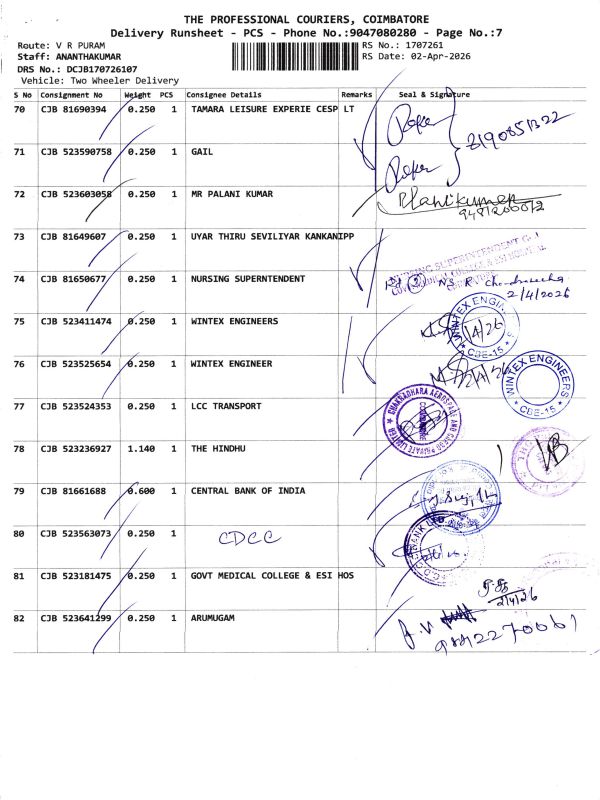 THE PROFESSIONAL COURIERS, COIMBATORE
Delivery Runsheet - PCS - Phone No.:9047080280 - Page No.:7
Route: V R PURAM
RS No.: 1707261
Staff: ANANTHAKUMAR
RS Date: 02-Apr-2026
DRS No.: DCJB170726107
Vehicle: Two Wheeler Delivery
S No Consignment No Weight PCS Consignee Details Remarks Seal & Signature
70 CJB 81690394 0.250 1 TAMARA LEISURE EXPERIE CESP LT
71 CJB 523590758 0.250 1 GAIL
72 CJB 523603058 0.250 1 MR PALANI KUMAR
Planikumar
73 CJB 81649607 0.250 1 UYAR THIRU SEVILIYAR KANKANIPP
74 CJB 81650677 0.250 1 NURSING SUPERNTENDENT
2/4/2026
75 CJB 523411474 0.250 1 WINTEX ENGINEERS
WINTEX ENGINEERS
CBE-15
76 CJB 523525654 0.250 1 WINTEX ENGINEER
WINTEX ENGINEERS
CBE-15
77 CJB 523524353 0.250 1 LCC TRANSPORT
78 CJB 523236927 1.140 1 THE HINDHU
79 CJB 81661688 0.600 1 CENTRAL BANK OF INDIA
80 CJB 523563073 0.250 1 CDCC
81 CJB 523181475 0.250 1 GOVT MEDICAL COLLEGE & ESI HOS
2/4/26
82 CJB 523641299 0.250 1 ARUMUGAM